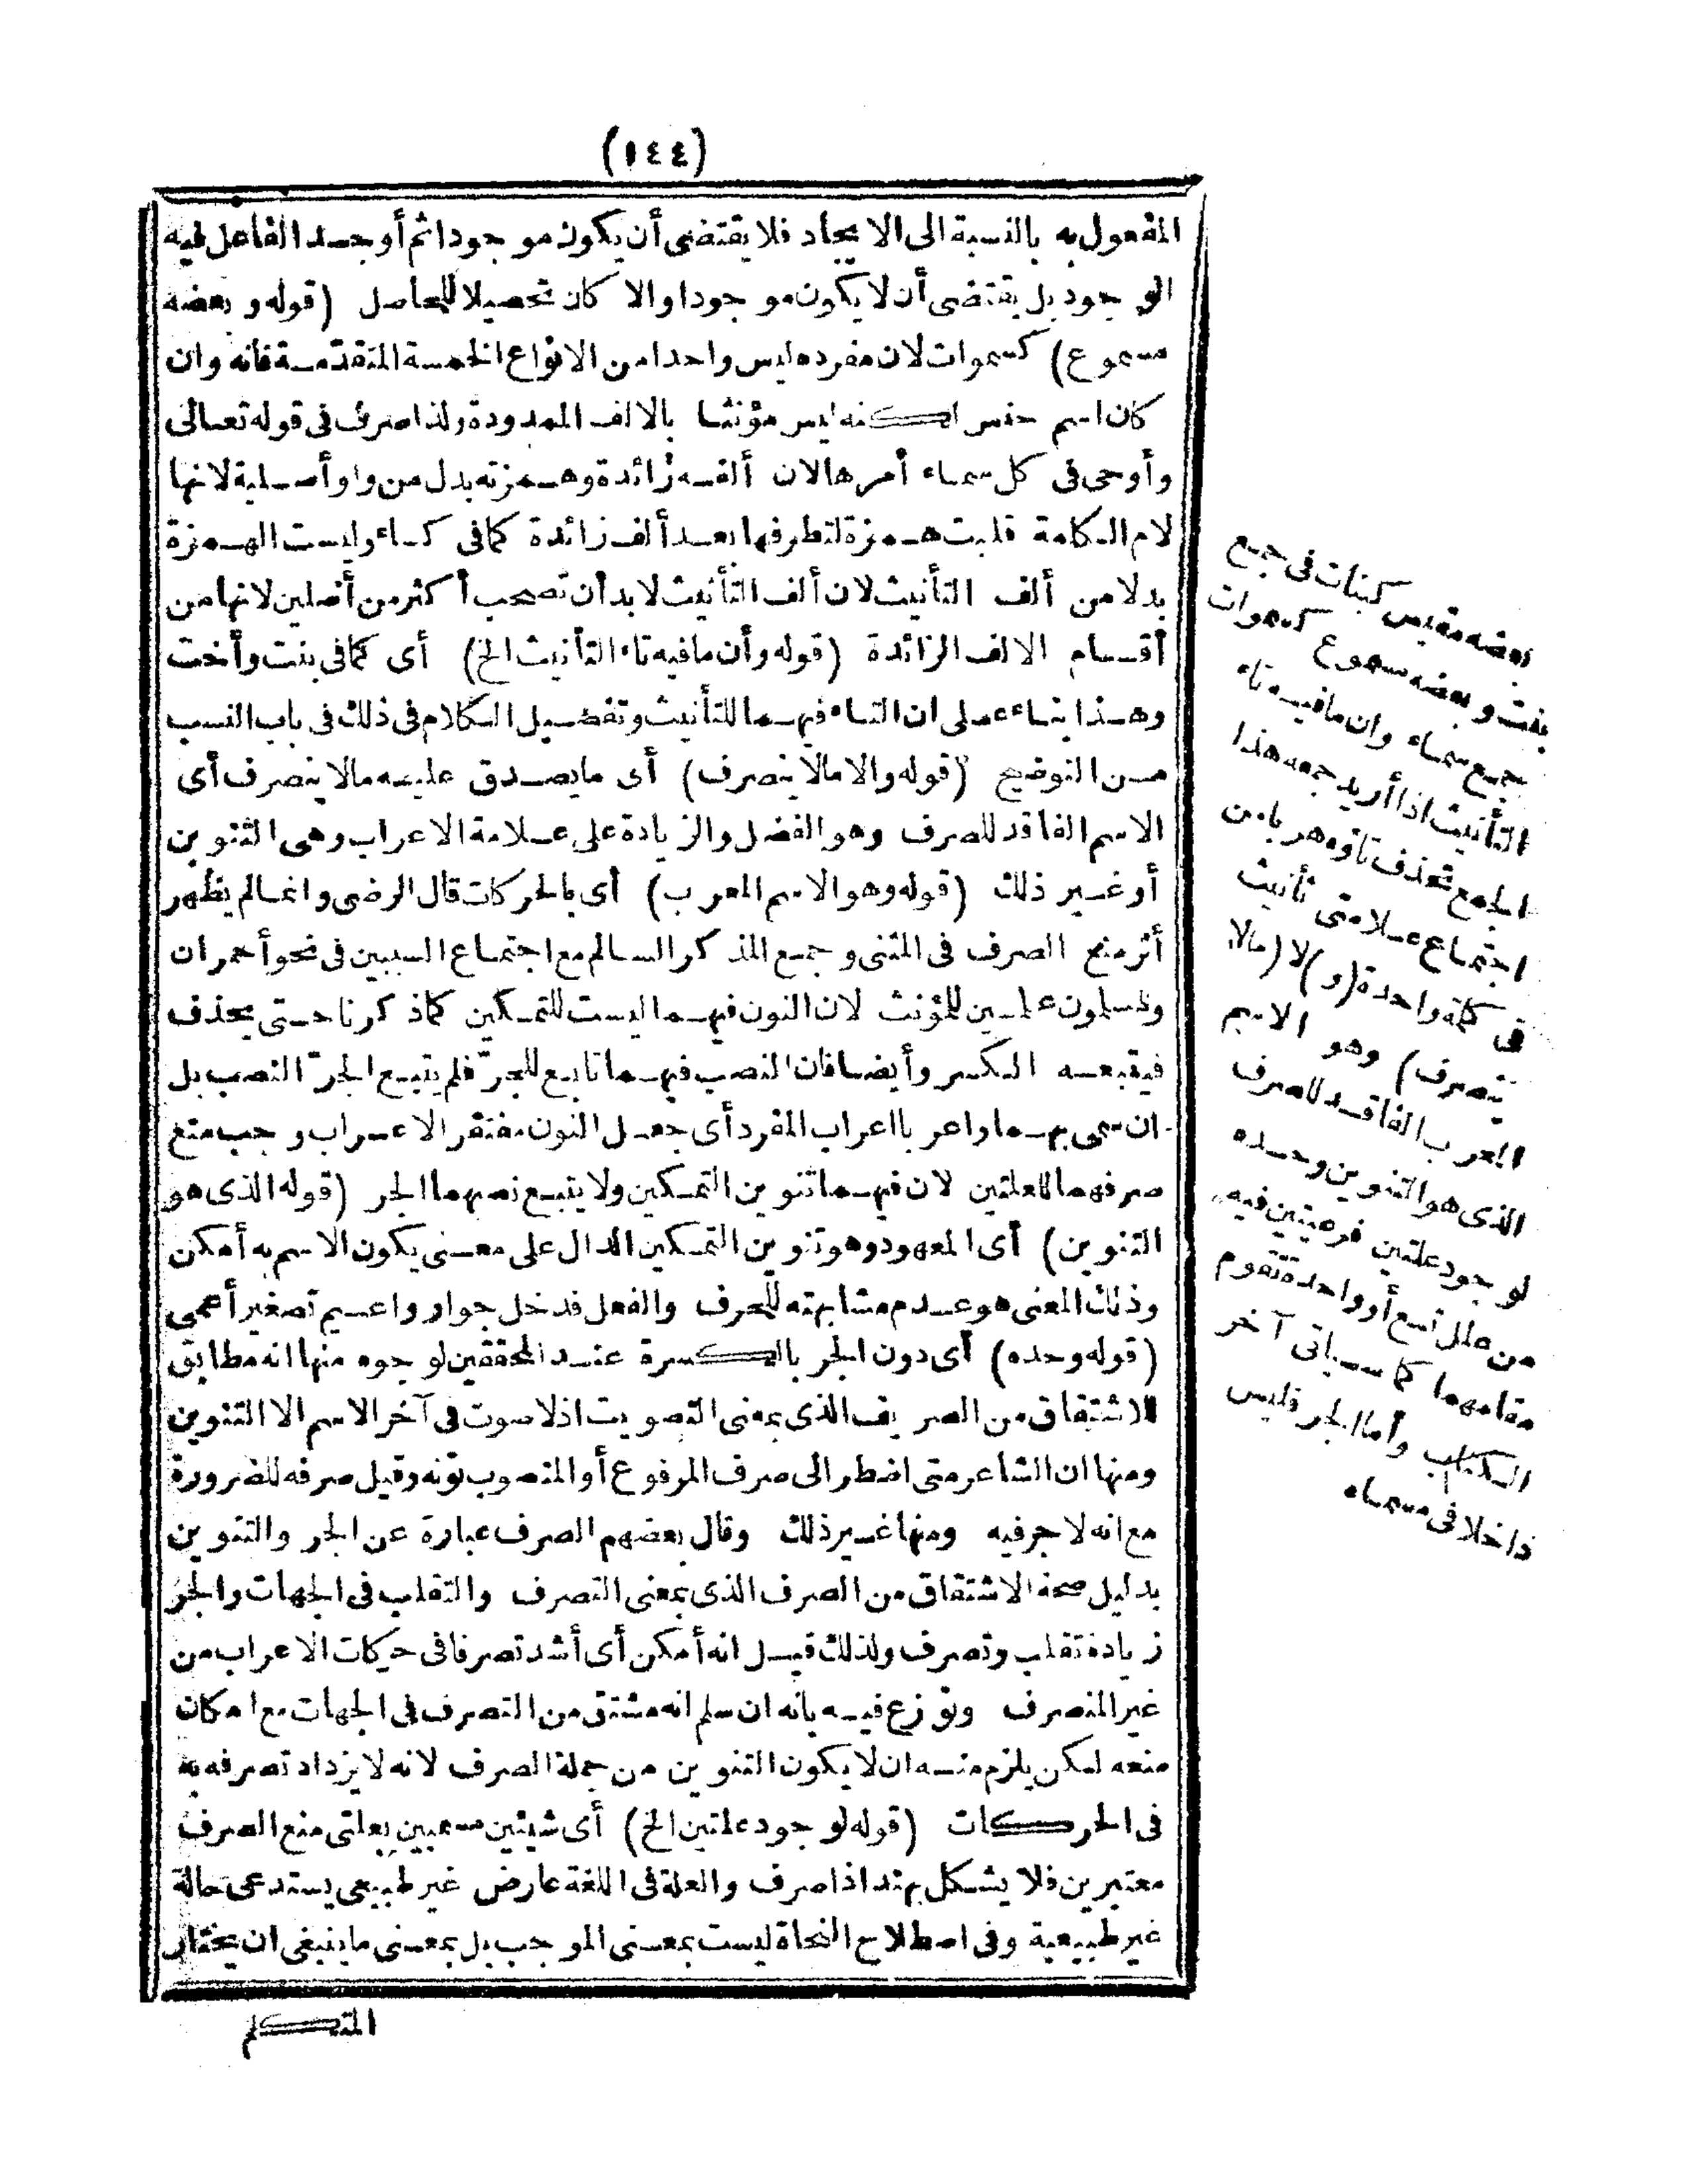 (١٤٤)
المفعول به بالنسبة الى الايجاد فلا يقتضى أن يكون موجودا ثم أوجد الفاعل فيه
الوجود بل يقتضى أن لا يكون موجودا والا كان تحصيلا للحاصل (قوله وبعضه
مسموع) كسموات لان مفرده ليس واحدا من الانواع الخمسة المتقدّمة فانه وان
كان اسم جنس لكنه ليس مؤنثا بالالف الممدودة ولذا صرف فى قوله تعالى
وأوحى فى كل سماء أمرها لان ألفه زائدة وهمزته بدل من واو أصلية لانها
لام الكلمة قلبت همزة لتطرفها بعد ألف زائدة كما فى كساء وليست الهمزة
بدلا من ألف التأنيث لان ألف التأنيث لا بد أن تصحب أكثر من أصلين لانها من
أقسام الالف الزائدة (قوله وأن ما فيه تاء التأنيث الخ) أى كما فى بنت وأخت
وهذا بناء على ان التاء فيهما للتأنيث وتفصيل الكلام فى ذلك فى باب النسب
من التوضيح (قوله والا مالا ينصرف) أى ما يصدق عليه مالا ينصرف أى
الاسم الفاقد للصرف وهو الفضل والزيادة على علامة الاعراب وهى التنوين
أو غير ذلك (قوله وهو الاسم المعرب) أى بالحركات قال الرضى وانما لم يظهر
أثر منع الصرف فى المثنى وجمع المذكر السالم مع اجتماع السببين فى نحو أحمران
ومسلمون علمين للمؤنث لان النون فيهما ليست للتمكين كما ذكرنا حتى يحذف
فيتبعه الكسر وأيضا فان النصب فيهما تابع للجرّ فلم يتبع الجرّ النصب بل
ان سمى بهما واعربا اعراب المفرد أى جعل النون معتقر الاعراب وجب منع
صرفهما للعلتين لان فيهما تنوين التمكين ولا يتبع نصبهما الجر (قوله الذى هو
التنوين) أى المعهود وهو تنوين التمكين الدال على معنى يكون الاسم به أمكن
وذلك المعنى هو عدم مشابهته للحرف والفعل فدخل جوار واعيم تصغير أعمى
(قوله وحده) أى دون الجر بالكسرة عند المحققين لوجوه منها انه مطابق
للاشتقاق من الصريف الذى بمعنى التصويت اذ لا صوت فى آخر الاسم الا التنوين
ومنها ان الشاعر متى اضطر الى صرف المرفوع أو المنصوب نونه وقيل صرفه للضرورة
مع انه لا جر فيه ومنها غير ذلك وقال بعضهم الصرف عبارة عن الجر والتنوين
بدليل صحة الاشتقاق من الصرف الذى بمعنى التصرف والتقلب فى الجهات والجر
زيادة تقلب وتصرف ولذلك قيل انه أمكن أى أشد تصرفا فى حركات الاعراب من
غير المنصرف ونوزع فيه بانه ان سلم انه مشتق من التصرف فى الجهات مع امكان
منعه لكن يلزم منه ان لا يكون التنوين من جملة الصرف لانه لا يزداد تصرفه به
فى الحركات (قوله لوجود علتين الخ) أى شيئين مسميين بعلتى منع الصرف
معتبرين فلا يشكل بهند اذا صرف والعلة فى اللغة عارض غير طبيعى يستدعى حالة
غير طبيعية وفى اصطلاح النحاة ليست بمعنى الموجب بل بمعنى ما ينبغى ان يختار
المتكلم
وبعضه مقيس كبنات فى جمع
بنت وبعضه مسموع كسموات
جمع سماء وان ما فيه تاء
التأنيث اذا أريد جمعه هذا
الجمع تحذف تاؤه هربا من
اجتماع علامتى تأنيث
فى كلمة واحدة (و) لا (مالا
ينصرف) وهو الاسم
المعرب الفاقد للصرف
الذى هو التنوين وحده
لوجود علتين فرعيتين فيه
من علل تسع أو واحدة تقوم
مقامهما كما سيأتى آخر
الكتاب وأما الجر فليس
داخلا فى مسماه